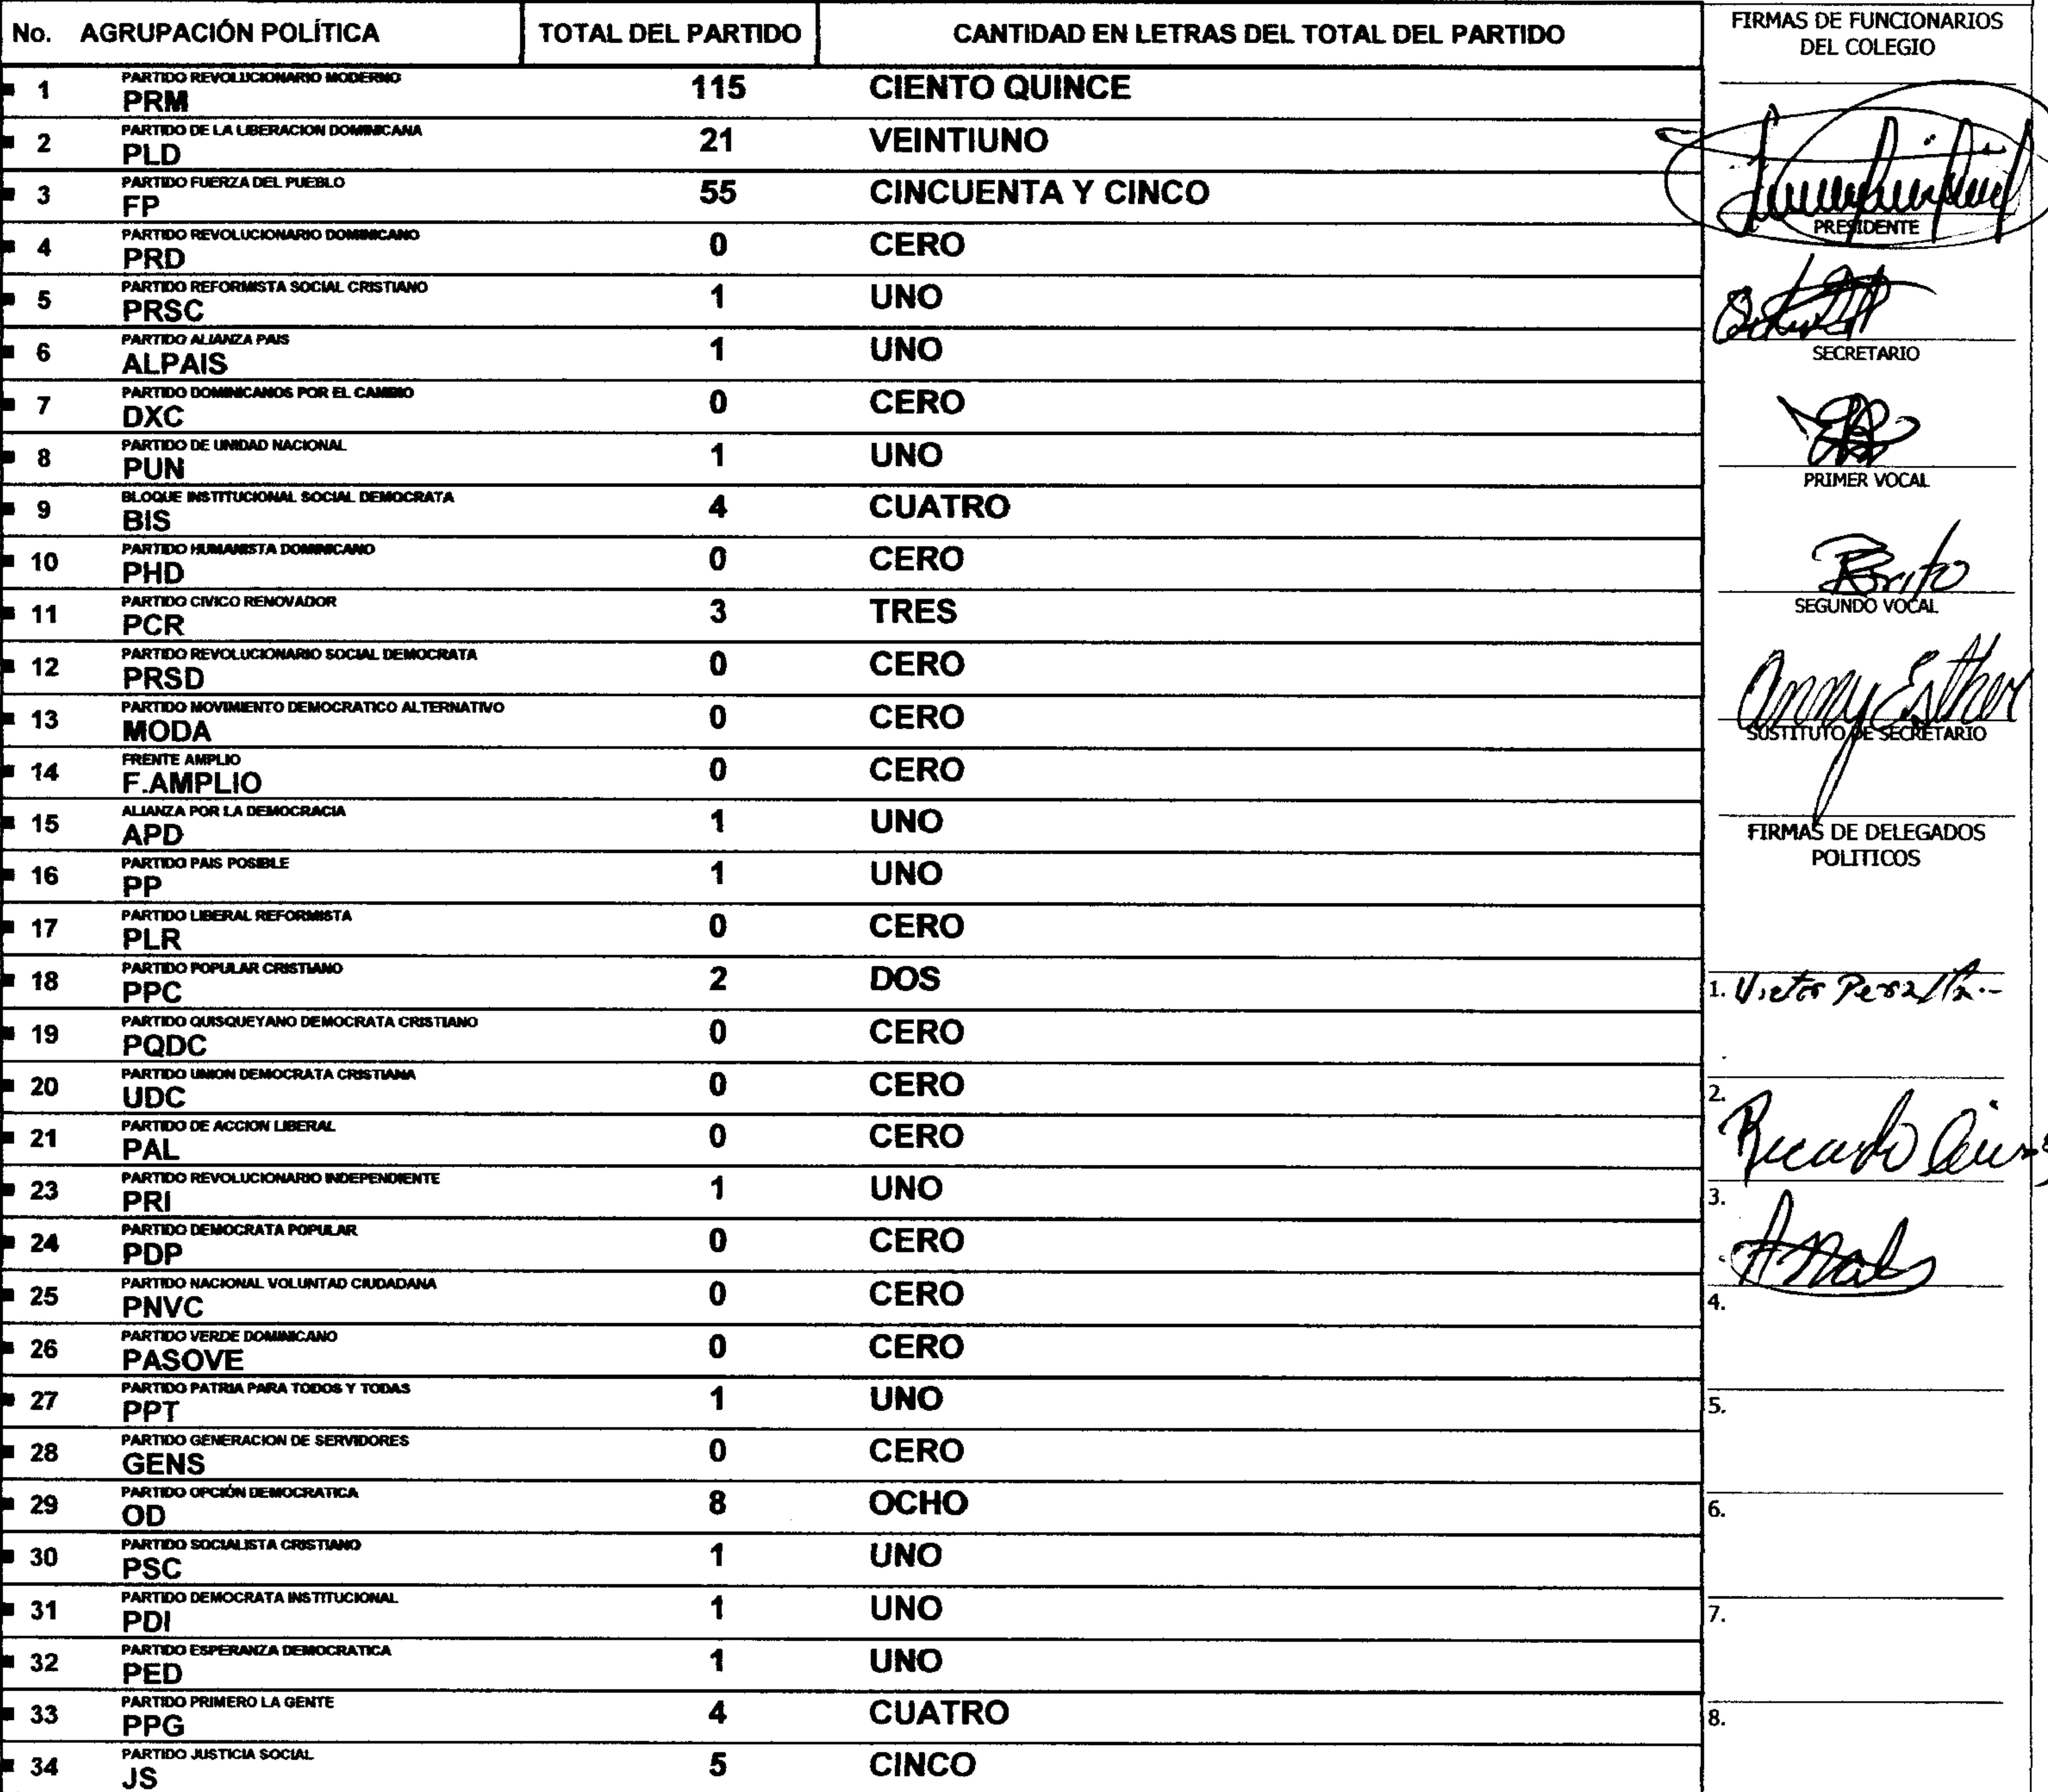 No. AGRUPACIÓN POLÍTICA TOTAL DEL PARTIDO CANTIDAD EN LETRAS DEL TOTAL DEL PARTIDO
1 PARTIDO REVOLUCIONARIO MODERNO
PRM 115 CIENTO QUINCE
2 PARTIDO DE LA LIBERACION DOMINICANA
PLD 21 VEINTIUNO
3 PARTIDO FUERZA DEL PUEBLO
FP 55 CINCUENTA Y CINCO
4 PARTIDO REVOLUCIONARIO DOMINICANO
PRD 0 CERO
5 PARTIDO REFORMISTA SOCIAL CRISTIANO
PRSC 1 UNO
6 PARTIDO ALIANZA PAIS
ALPAIS 1 UNO
7 PARTIDO DOMINICANOS POR EL CAMBIO
DXC 0 CERO
8 PARTIDO DE UNIDAD NACIONAL
PUN 1 UNO
9 BLOQUE INSTITUCIONAL SOCIAL DEMOCRATA
BIS 4 CUATRO
10 PARTIDO HUMANISTA DOMINICANO
PHD 0 CERO
11 PARTIDO CIVICO RENOVADOR
PCR 3 TRES
12 PARTIDO REVOLUCIONARIO SOCIAL DEMOCRATA
PRSD 0 CERO
13 PARTIDO MOVIMIENTO DEMOCRATICO ALTERNATIVO
MODA 0 CERO
14 FRENTE AMPLIO
F.AMPLIO 0 CERO
15 ALIANZA POR LA DEMOCRACIA
APD 1 UNO
16 PARTIDO PAIS POSIBLE
PP 1 UNO
17 PARTIDO LIBERAL REFORMISTA
PLR 0 CERO
18 PARTIDO POPULAR CRISTIANO
PPC 2 DOS
19 PARTIDO QUISQUEYANO DEMOCRATA CRISTIANO
PQDC 0 CERO
20 PARTIDO UNION DEMOCRATA CRISTIANA
UDC 0 CERO
21 PARTIDO DE ACCION LIBERAL
PAL 0 CERO
23 PARTIDO REVOLUCIONARIO INDEPENDIENTE
PRI 1 UNO
24 PARTIDO DEMOCRATA POPULAR
PDP 0 CERO
25 PARTIDO NACIONAL VOLUNTAD CIUDADANA
PNVC 0 CERO
26 PARTIDO VERDE DOMINICANO
PASOVE 0 CERO
27 PARTIDO PATRIA PARA TODOS Y TODAS
PPT 1 UNO
28 PARTIDO GENERACION DE SERVIDORES
GENS 0 CERO
29 PARTIDO OPCIÓN DEMOCRATICA
OD 8 OCHO
30 PARTIDO SOCIALISTA CRISTIANO
PSC 1 UNO
31 PARTIDO DEMOCRATA INSTITUCIONAL
PDI 1 UNO
32 PARTIDO ESPERANZA DEMOCRATICA
PED 1 UNO
33 PARTIDO PRIMERO LA GENTE
PPG 4 CUATRO
34 PARTIDO JUSTICIA SOCIAL
JS 5 CINCO
FIRMAS DE FUNCIONARIOS
DEL COLEGIO
PRESIDENTE
SECRETARIO
PRIMER VOCAL
Brito
SEGUNDO VOCAL
Anny Esther
SUSTITUTO DE SECRETARIO
FIRMAS DE DELEGADOS
POLITICOS
1. Victor Peralta.-
2.
Ricardo
3.
4.
5.
6.
7.
8.